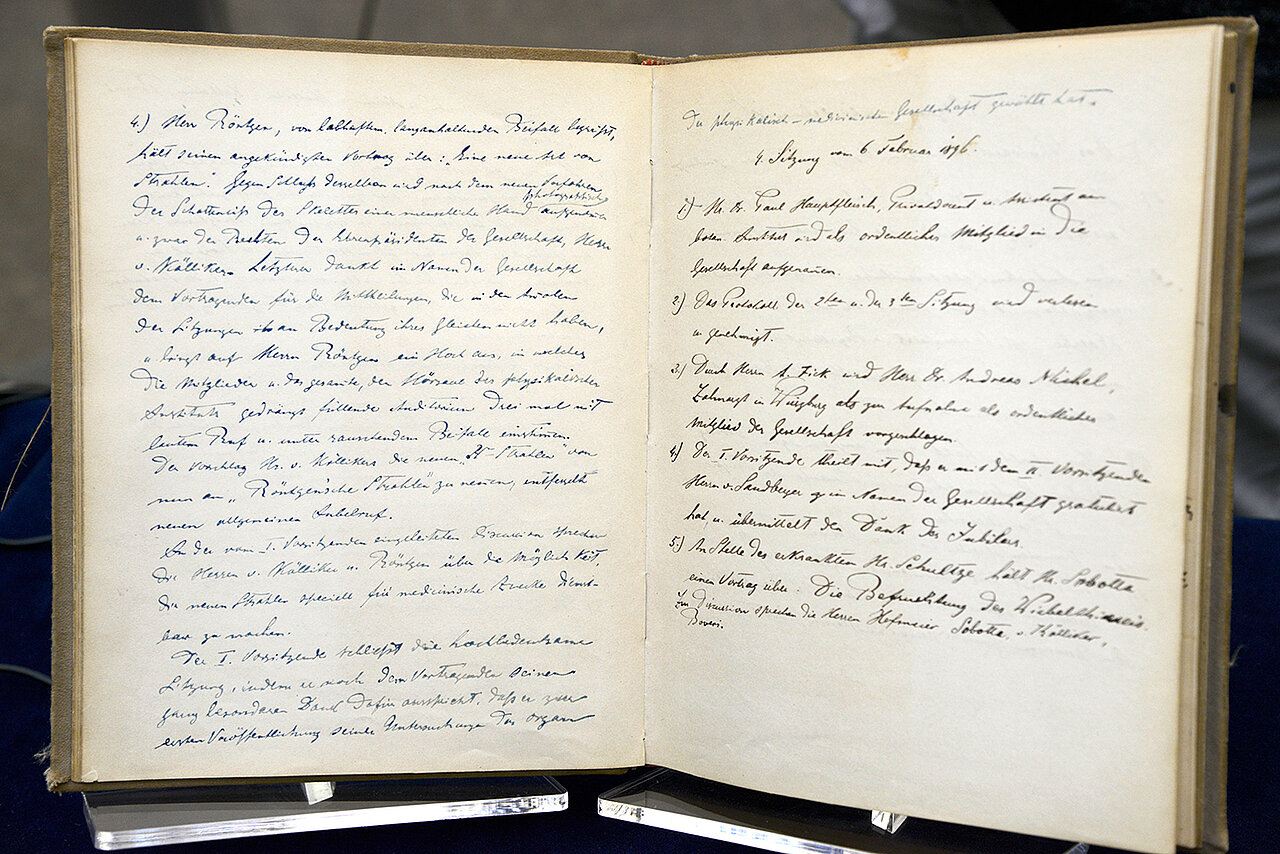 4.) Herr Röntgen, von lebhaftem, langanhaltenden Beifall begrüßt,
hält seinen angekündigten Vortrag über: „Eine neue Art von
Strahlen“. Gegen Schluß desselben wird nach dem neuen Verfahren
photographisch
der Schattenriß des Skelettes einer menschliche Hand aufgenommen
u. zwar der Rechten des Ehrenpräsidenten der Gesellschaft, Herrn
v. Kölliker. Letzterer dankt im Namen der Gesellschaft
dem Vortragenden für die Mittheilungen, die in den Annalen
der Sitzungen an Bedeutung ihres gleichen nicht haben,
u. bringt auf Herrn Röntgen ein Hoch aus, in welches
die Mitglieder u. das gesamte, den Hörsaal des physikalischen
Instituts gedrängt füllende Auditorium Drei mal mit
lautem Ruf u. unter rauschendem Beifalle einstimmen.
Der Vorschlag Hr. v. Köllikers die neuen „X-Strahlen“ von
nun an „Röntgen'sche Strahlen zu nennen, entfesselt
neuen allgemeinen Jubelruf.
In der vom I. Vorsitzenden eingeleiteten Discussion sprechen
die Herren v. Kölliker u. Röntgen über die Möglichkeit,
die neuen Strahlen speciell für medicinische Zwecke dienst-
bar zu machen.
Der I. Vorsitzende schließt die hochbedeutsame
Sitzung, indem er noch dem Vortragenden seinen
ganz besonderen Dank dafür ausspricht, daß er zur
ersten Veröffentlichung seiner Untersuchungen das Organ
der physikalisch-medicinischen Gesellschaft gewählt hat.
4. Sitzung vom 6 Februar 1896.
1.) Hr. Dr. Paul Hauptfleisch, Privatdocent u. Assistent am
botan. Institut wird als ordentliches Mitglied in die
Gesellschaft aufgenommen.
2.) Das Protokoll der 2ten u. der 3ten Sitzung wird verlesen
u. genehmigt.
3.) Durch Herrn A. Fick wird Herr Dr. Andreas Michel,
Zahnarzt in Würzburg als zur Aufnahme als ordentliches
Mitglied der Gesellschaft vorgeschlagen.
4.) Der I. Vorsitzende theilt mit, daß er mit dem II Vorsitzenden
Herrn v. Sandberger im Namen der Gesellschaft gratulirt
hat, u. übermittelt den Dank des Jubilars.
5.) An Stelle des erkrankten Hr. Schultze hält Hr. Sobotta
einen Vortrag über: Die Befruchtung des Wirbelthiereies.
In der Discussion sprechen die Herren Hofmeier, Sobotta, v. Kölliker,
Boveri.